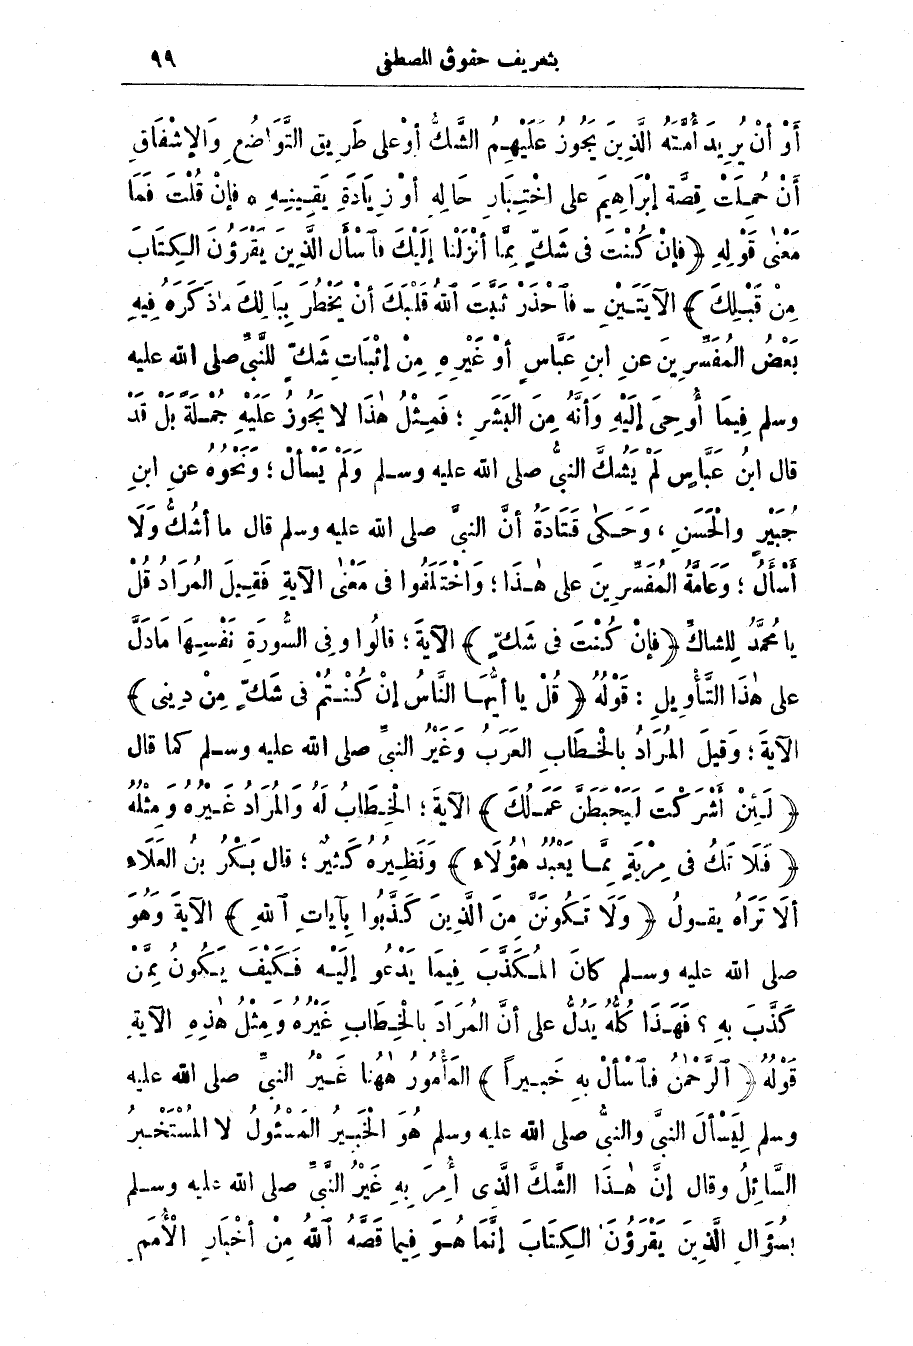 بتعريف حقوق المصطفى ٩٩
أَوْ أَنْ يُرِيدَ أُمَّتَهُ الَّذِينَ يَجُوزُ عَلَيْهِمُ الشَّكُّ أَوْ عَلَى طَرِيقِ التَّوَاضُعِ وَالإِشْفَاقِ
أَنْ حُمِلَتْ قِصَّةُ إبْرَاهِيمَ على اخْتِبَارِ حَالِهِ أَوْ زِيَادَةِ يَقِينِهِ ٥ فإنْ قُلْتَ فَمَا
مَعْنَى قَوْلِهِ ﴿فإنْ كُنْتَ فى شَكٍّ مِمَّا أنْزَلْنَا إلَيْكَ فاسْأَلِ الَّذِينَ يَقْرَؤُنَ الكِتَابَ
مِنْ قَبْلِكَ﴾ الآيَتَيْنِ - فاحْذَرْ ثَبَّتَ اللهُ قَلْبَكَ أنْ يَخْطُرَ بِبَالِكَ مَاذَكَرَهُ فِيهِ
بَعْضُ المُفَسِّرِينَ عنِ ابنِ عَبَّاسٍ أوْ غَيْرِهِ مِنْ إثْبَاتِ شَكٍّ للنَّبِيِّ صلى الله عليه
وسلم فِيمَا أُوحِىَ إلَيْهِ وَأنَّهُ مِنَ البَشَرِ ؛ فَمِثْلُ هٰذَا لا يَجُوزُ عَلَيْهِ جُمْلَةً بَلْ قَدْ
قال ابنُ عَبَّاسٍ لَمْ يَشُكَّ النبىُّ صلى الله عليه وسلم وَلَمْ يَسْأَلْ ؛ وَنَحْوُهُ عنِ ابنِ
جُبَيْرٍ والْحَسَنِ ، وَحَكىٰ قَتَادَةُ أنَّ النبىَّ صلى الله عليه وسلم قال ما أشُكُّ وَلَا
أَسْأَلُ ؛ وَعَامَّةُ المُفَسِّرِينَ على هٰذَا ؛ وَاخْتَلَفُوا فى مَعْنَى الآيَةِ فَقِيلَ المُرَادُ قُلْ
يا مُحَمَّدُ لِلشاكِّ ﴿فإنْ كُنْتَ فى شَكٍّ﴾ الآيَةَ ؛ قالُوا وفِى السُّورَةِ نَفْسِهَا مَادَلَّ
على هٰذَا التَّأْوِيلِ : قَوْلُهُ ﴿قُلْ يا أَيُّهَا النَّاسُ إنْ كُنْتُمْ فى شَكٍّ مِنْ دِينى﴾
الآيَةَ ؛ وَقِيلَ المُرَادُ بالْخِطَابِ العَرَبُ وَغَيْرُ النبىِّ صلى الله عليه وسلم كما قال
﴿لَئِنْ أَشْرَكْتَ لَيَحْبَطَنَّ عَمَلُكَ﴾ الآيَةَ ؛ الْخِطَابُ لَهُ وَالمُرَادُ غَيْرُهُ وَمِثْلُهُ
﴿فَلَا تَكُ فى مِرْيَةٍ مِمَّا يَعْبُدُ هٰؤُلَاءِ﴾ وَنَظِيرُهُ كَثِيرٌ ؛ قال بَكْرُ بنُ العَلَاءِ
ألا تَرَاهُ يقولُ ﴿وَلَا تَكُونَنَّ مِنَ الَّذِينَ كَذَّبُوا بِآيَاتِ اللهِ﴾ الآيَةَ وَهُوَ
صلى الله عليه وسلم كانَ المُكَذَّبَ فِيمَا يَدْعُو إلَيْهِ فَكَيْفَ يَكُونُ مِمَّنْ
كَذَّبَ بِهِ ؟ فَهَذَا كُلُّهُ يَدُلُّ على أنَّ المُرَادَ بالْخِطَابِ غَيْرُهُ وَمِثْلُ هٰذِهِ الآيَةِ
قَوْلُهُ ﴿الرَّحْمٰنُ فاسْأَلْ بِهِ خَبِيراً﴾ المَأْمُورُ هٰهُنَا غَيْرُ النبىِّ صلى الله عليه
وسلم لِيَسْأَلَ النبىَّ والنبىُّ صلى الله عليه وسلم هُوَ الْخَبِيرُ المَسْئُولُ لا المُسْتَخْبِرُ
السَّائِلُ وقال إنَّ هٰذَا الشَّكَّ الَّذِى أُمِرَ بِهِ غَيْرُ النَّبىِّ صلى الله عليه وسلم
بِسُؤَالِ الَّذِينَ يَقْرَؤُنَ الكِتَابَ إنَّمَا هُوَ فِيمَا قَصَّهُ اللهُ مِنْ أَخْبَارِ الْأُمَمِ